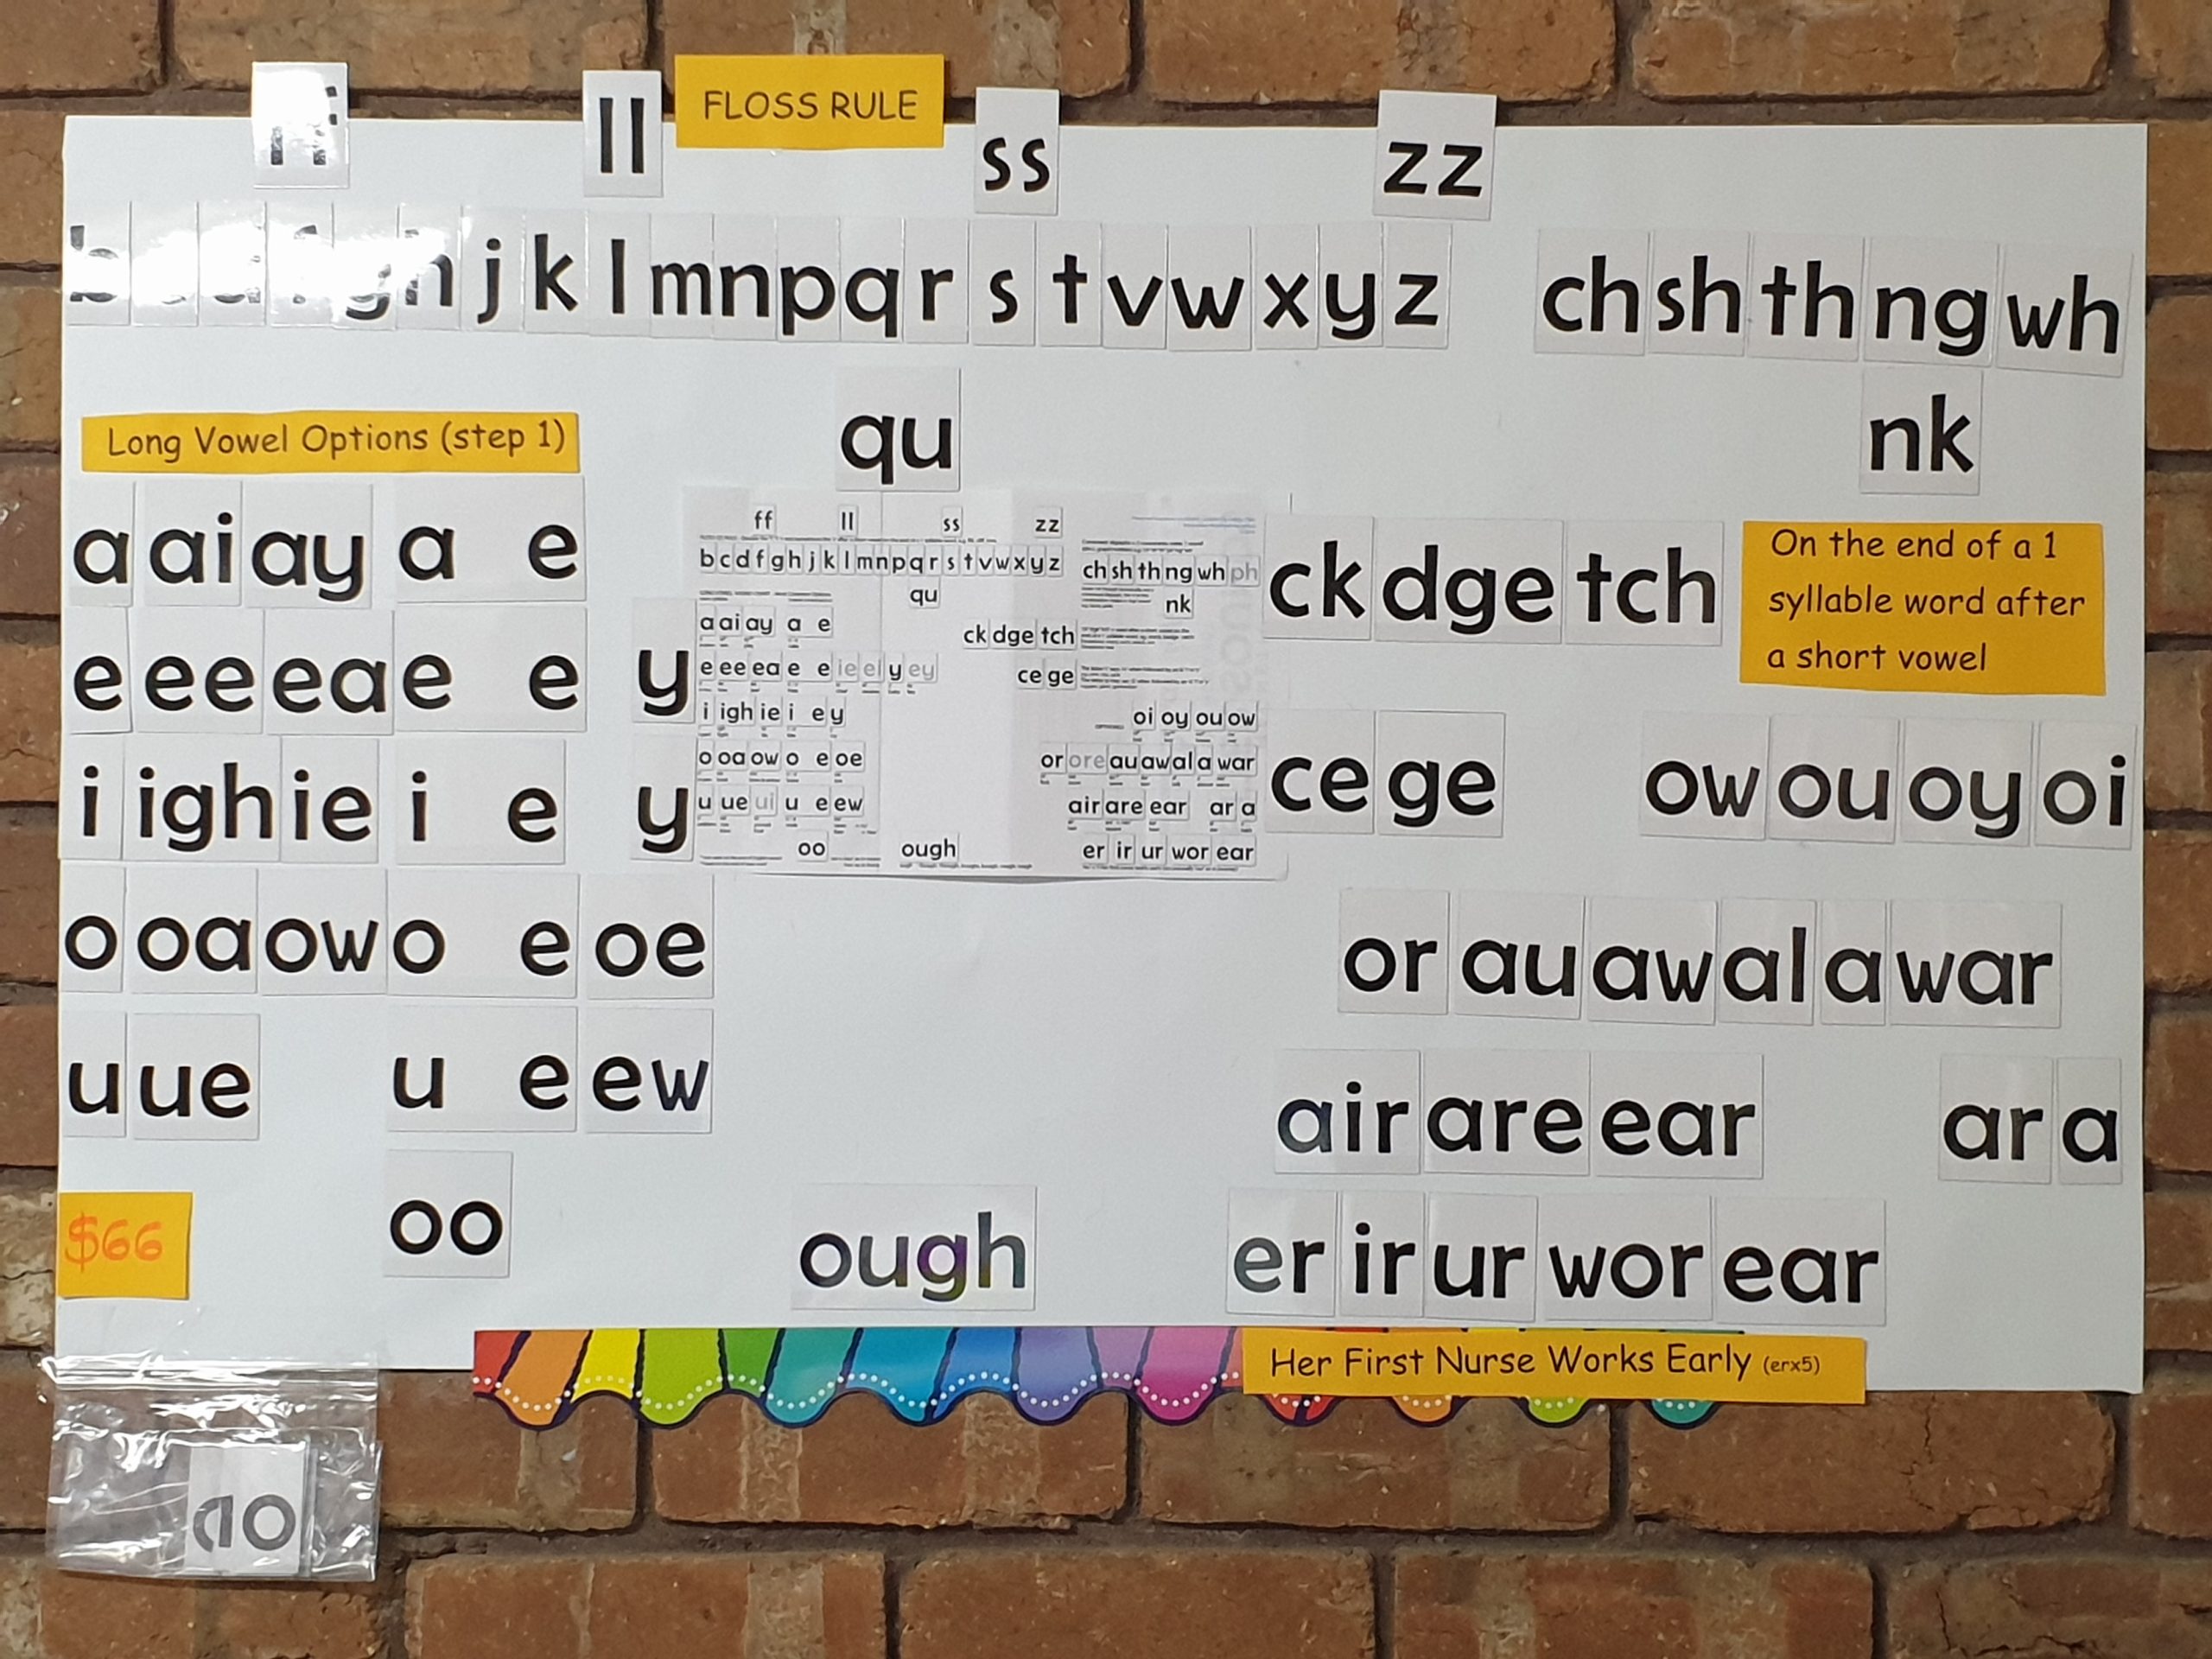 FLOSS RULE
ff ll ss zz
b c d f g h j k l m n p q r s t v w x y z ch sh th ng wh
qu nk
Long Vowel Options (step 1)
a ai ay a e
e ee ea e e y
i igh ie i e y
o oa ow o e oe
u ue u e ew
oo
ough
$66
ff ll ss zz
b c d f g h j k l m n p q r s t v w x y z ch sh th ng wh ph
qu nk
a ai ay a e
ck dge tch
e ee ea e e ie ei y ey
ce ge
i igh ie i e y
oi oy ou ow
o oa ow o e oe
or ore au aw al a war
u ue ui u e ew
air are ear ar a
oo ough
er ir ur wor ear
ck dge tch
On the end of a 1
syllable word after
a short vowel
ce ge ow ou oy oi
or au aw al a war
air are ear ar a
er ir ur wor ear
Her First Nurse Works Early (erx5)